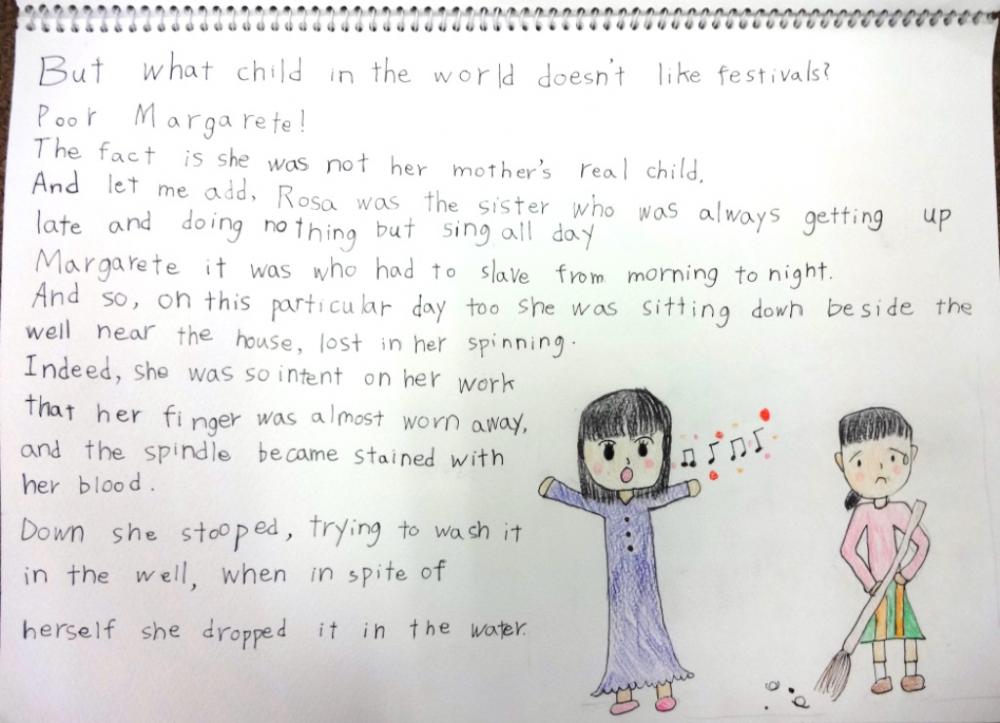 But what child in the world doesn't like festivals?
Poor Margarete!
The fact is she was not her mother's real child.
And let me add, Rosa was the sister who was always getting up
late and doing nothing but sing all day
Margarete it was who had to slave from morning to night.
And so, on this particular day too she was sitting down beside the
well near the house, lost in her spinning.
Indeed, she was so intent on her work
that her finger was almost worn away,
and the spindle became stained with
her blood.
Down she stooped, trying to wash it
in the well, when in spite of
herself she dropped it in the water.